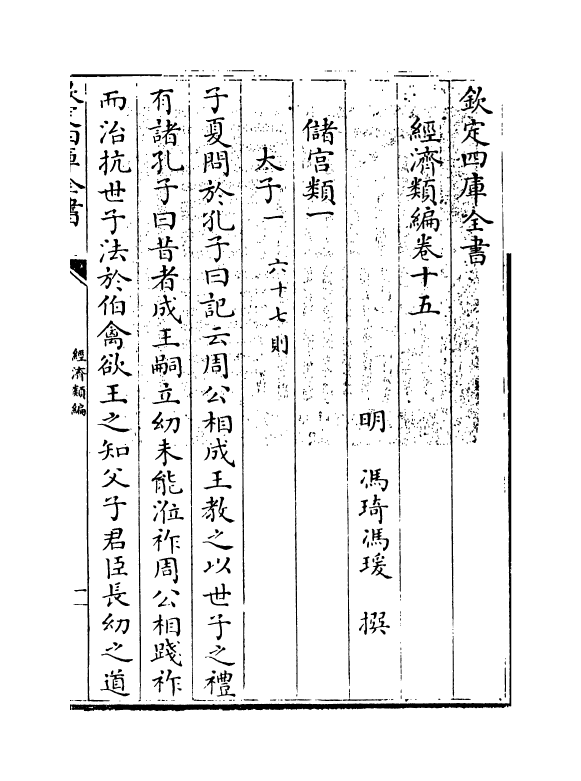 欽定四庫全書
經濟類編卷十五
明　馮琦馮瑗　撰
儲宫類一
太子一　六十七則
子夏問於孔子曰記云周公相成王教之以世子之禮
有諸孔子曰昔者成王嗣立幼未能涖祚周公相踐祚
而治抗世子法於伯禽欲王之知父子君臣長幼之道
欽定四庫全書
經濟類編
一